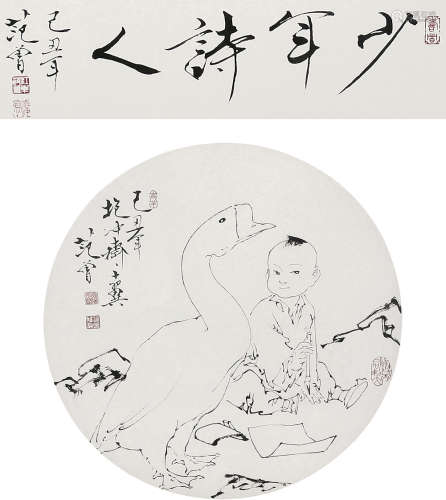 少年詩人
己丑年
范曾
己丑年
抱冲齋主十翼
范曾